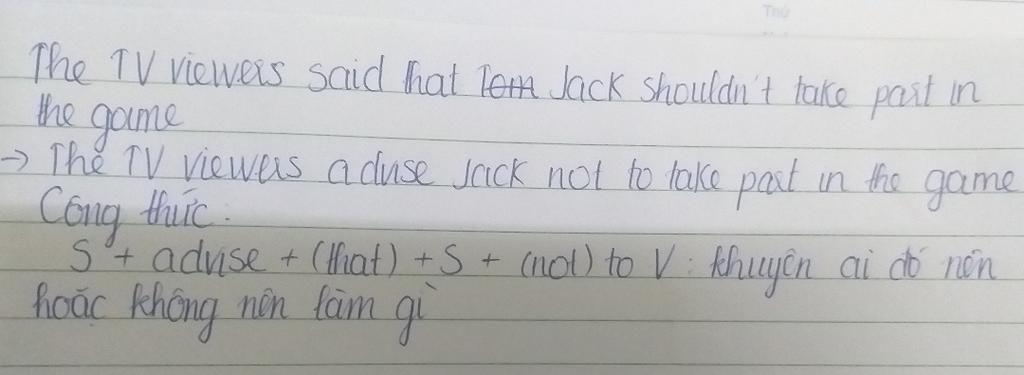 Thứ
The TV viewers said that Tom Jack shouldn't take part in
the game
→ The TV viewers advise Jack not to take part in the game
Công thức:
S + advise + (that) + S + (not) to V: khuyên ai đó nên
hoặc không nên làm gì